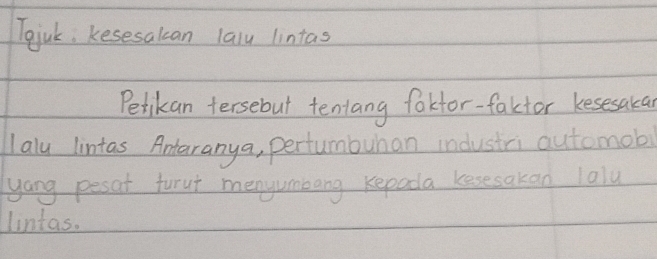 Tajuk : kesesakan lalu lintas
Petikan tersebut tentang faktor-faktor kesesakan
lalu lintas Antaranya, pertumbuhan industri automobil
yang pesat turut menyumbang kepada kesesakan lalu
lintas.